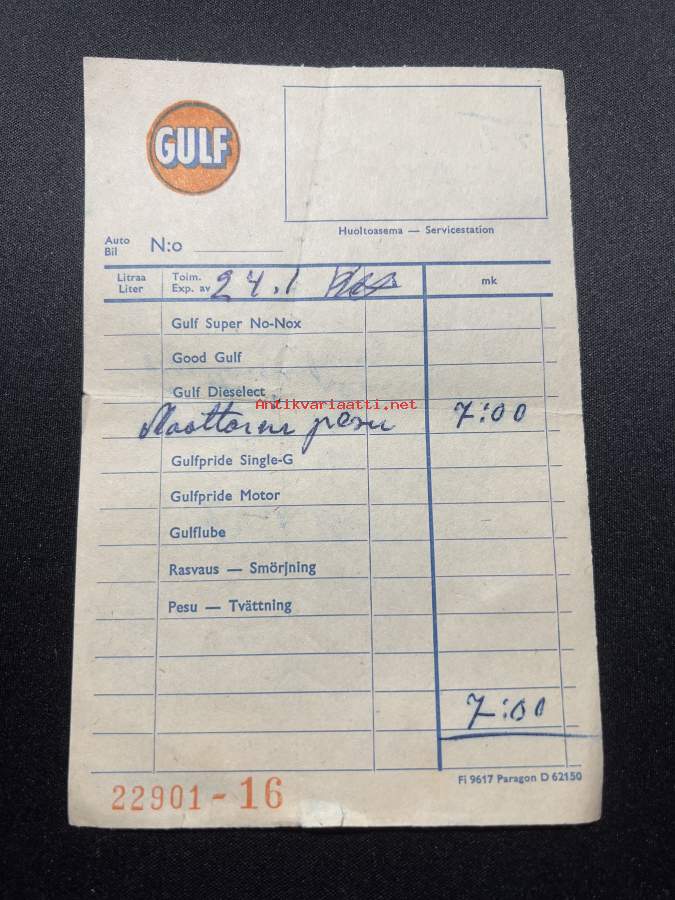 GULF
Huoltoasema — Servicestation
Auto
Bil
N:o
Litraa
Liter
Toim.
Exp. av
24.1
mk
Gulf Super No-Nox
Good Gulf
Gulf Dieselect
Antikvariaatti.net
Moottorin pesu 7:00
Gulfpride Single-G
Gulfpride Motor
Gulflube
Rasvaus — Smörjning
Pesu — Tvättning
7:00
Fi 9617 Paragon D 62150
22901 - 16